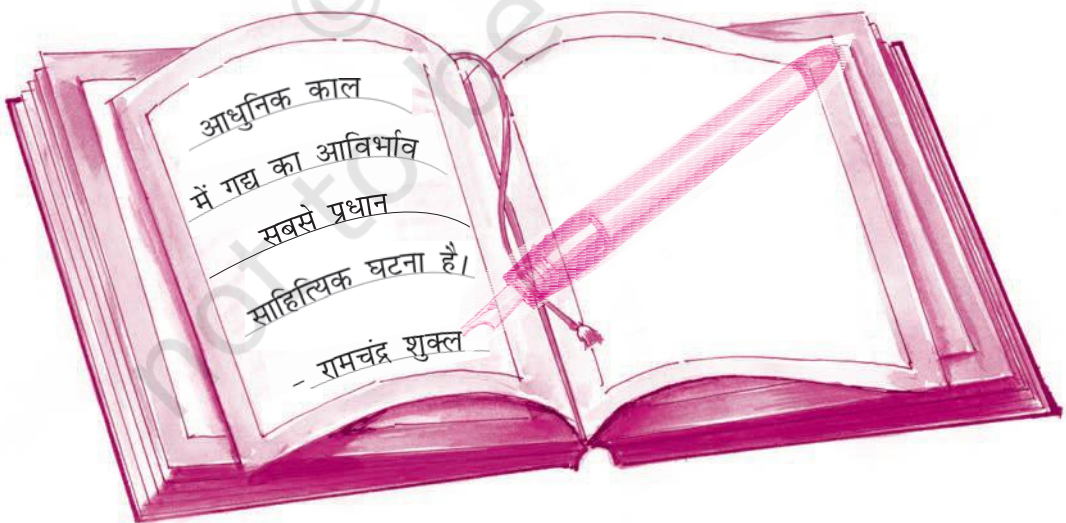 आधुनिक काल
में गद्य का आविर्भाव
सबसे प्रधान
साहित्यिक घटना है।
- रामचंद्र शुक्ल
not to be